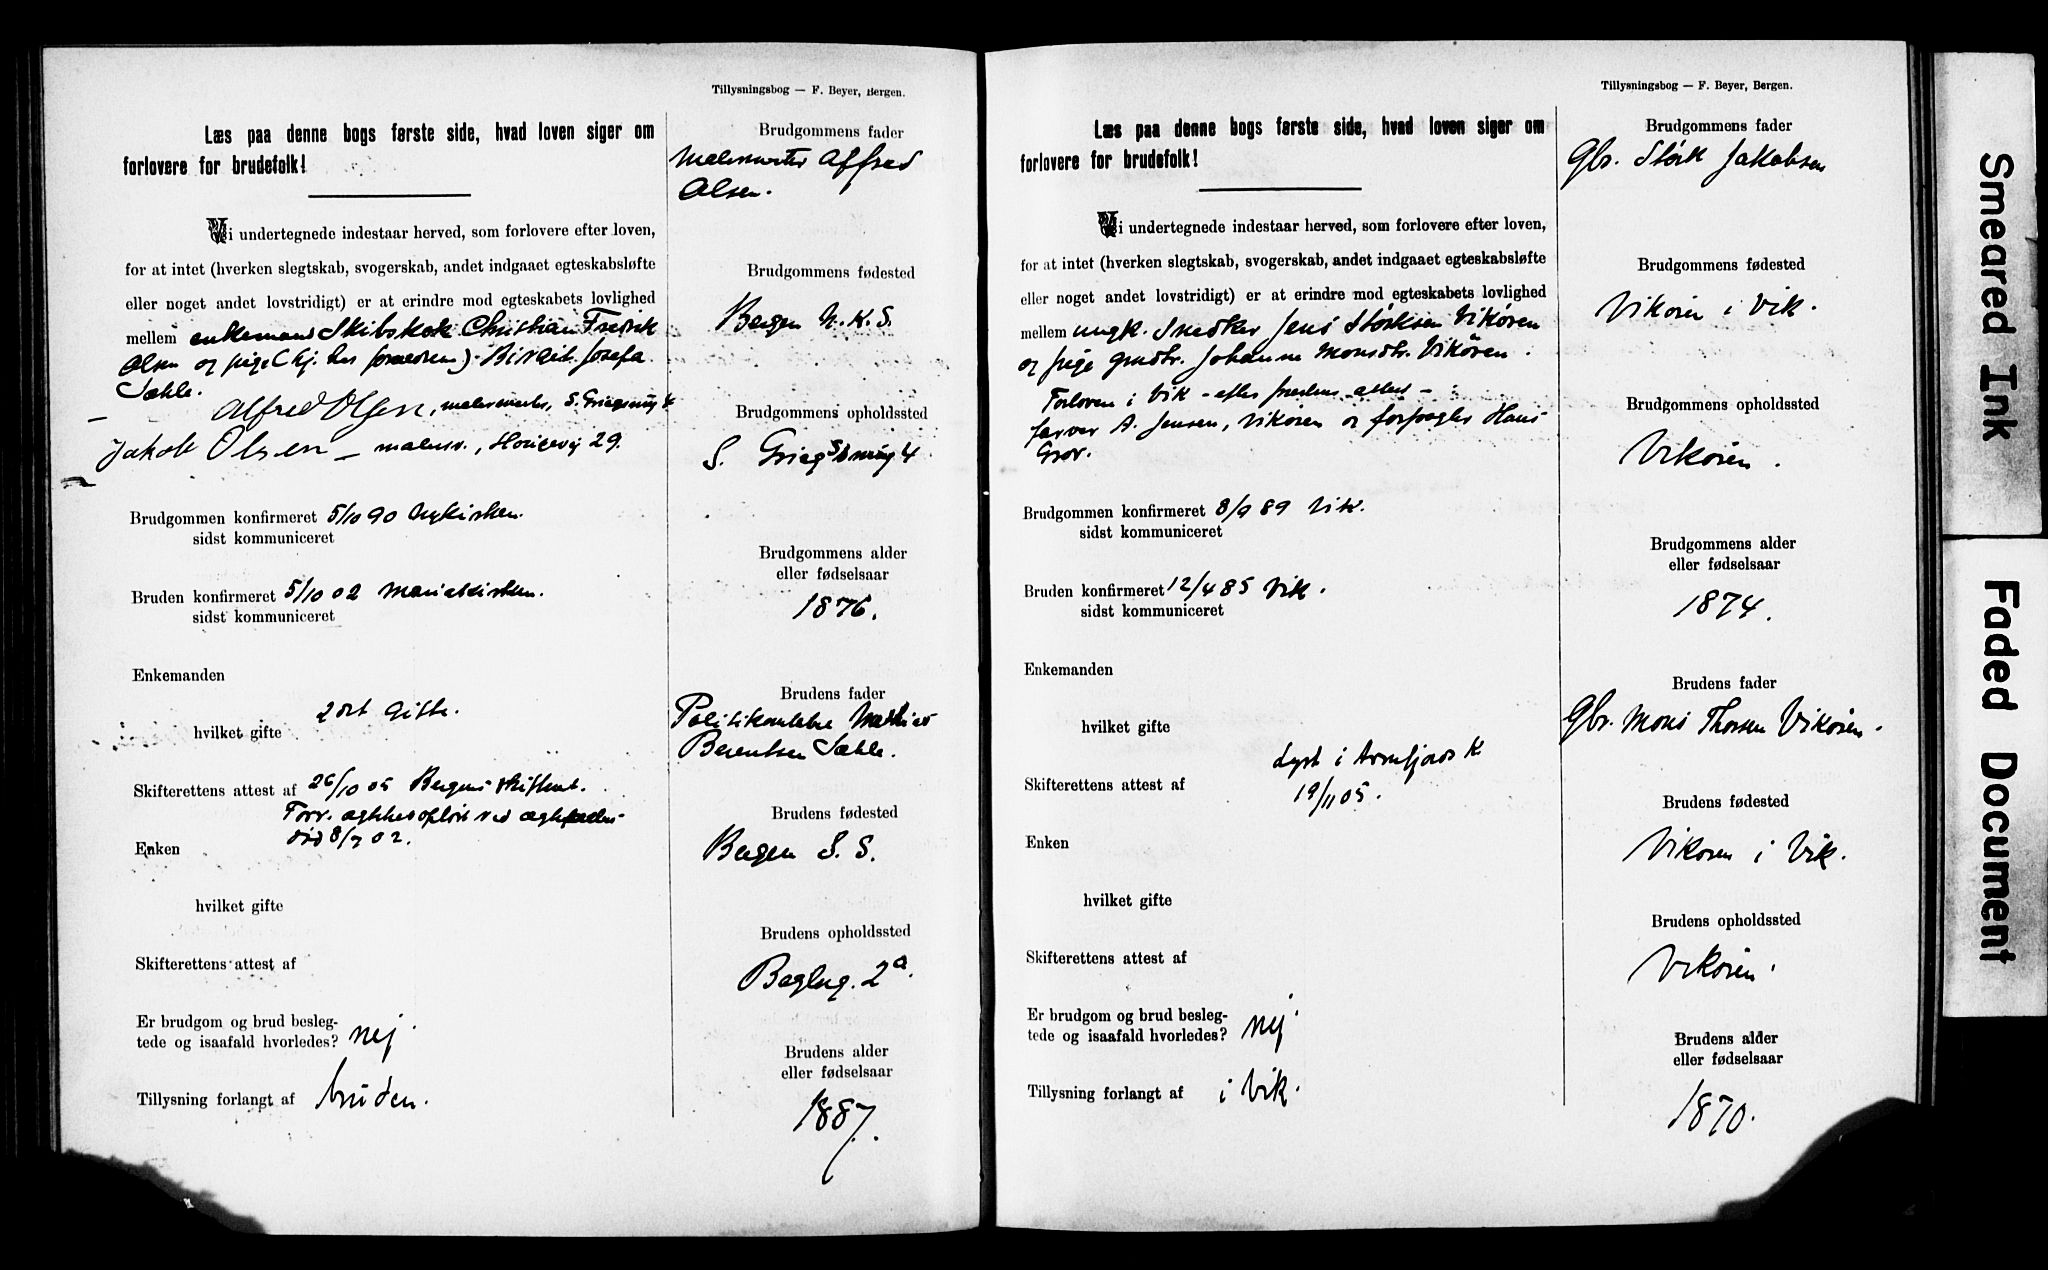 Tillysningsbog — F. Beyer, Bergen.
Læs paa denne bogs første side, hvad loven siger om
forlovere for brudefolk!
Vi undertegnede indestaar herved, som forlovere efter loven,
for at intet (hverken slegtskab, svogerskab, andet indgaaet egteskabsløfte
eller noget andet lovstridigt) er at erindre mod egteskabets lovlighed
mellem enkemand Skibskok Christian Fredrik
Olsen og pige (hj. hos forældren) Birgit Josefa
Sæhle.
Alfred Olsen, malermester, S. Griegsmug 4
Jakob Olsen — malersv., Hougevej 29.
Brudgommen konfirmeret 5/10 90 Nykirken.
sidst kommuniceret
Bruden konfirmeret 5/10 02 Mariakirken.
sidst kommuniceret
Enkemanden
2det gifte.
hvilket gifte
Skifterettens attest af 26/10 05 Bergens skifteret.
Forr. ægtesk opløst ved ægtefælles
død 8/7 02.
Enken
hvilket gifte
Skifterettens attest af
Er brudgom og brud besleg-
tede og isaafald hvorledes? nej
Tillysning forlangt af bruden.
Brudgommens fader
Malermester Alfred
Olsen.
Brudgommens fødested
Bergen N. K. S.
Brudgommens opholdssted
S. Griegsmug 4
Brudgommens alder
eller fødselsaar
1876.
Brudens fader
Politikonstabel Mathias
Berentsen Sæhle.
Brudens fødested
Bergen S. S.
Brudens opholdssted
Baglug. 2a.
Brudens alder
eller fødselsaar
1887.
Tillysningsbog — F. Beyer, Bergen.
Læs paa denne bogs første side, hvad loven siger om
forlovere for brudefolk!
Vi undertegnede indestaar herved, som forlovere efter loven,
for at intet (hverken slegtskab, svogerskab, andet indgaaet egteskabsløfte
eller noget andet lovstridigt) er at erindre mod egteskabets lovlighed
mellem ungk. Snedker Jens Størksen Vikøren
og pige gmdtr. Johanne Monsdtr. Vikøren.
Forlovere i Vik - efter prestens attest -
farver A. Jensen, Vikøren og forpagter Hans
Grov.
Brudgommen konfirmeret 8/9 89 Vik.
sidst kommuniceret
Bruden konfirmeret 12/4 85 Vik.
sidst kommuniceret
Enkemanden
hvilket gifte
Lyst i Arnefjords K
Skifterettens attest af 19/11 05.
Enken
hvilket gifte
Skifterettens attest af
Er brudgom og brud besleg-
tede og isaafald hvorledes? nej
Tillysning forlangt af i Vik.
Brudgommens fader
Gbr. Størk Jakobsen
Brudgommens fødested
Vikøren i Vik.
Brudgommens opholdssted
Vikøren.
Brudgommens alder
eller fødselsaar
1874.
Brudens fader
Gbr. Mons Thorsen Vikøren.
Brudens fødested
Vikøren i Vik.
Brudens opholdssted
Vikøren.
Brudens alder
eller fødselsaar
1870.
Smeared Ink
Faded Document